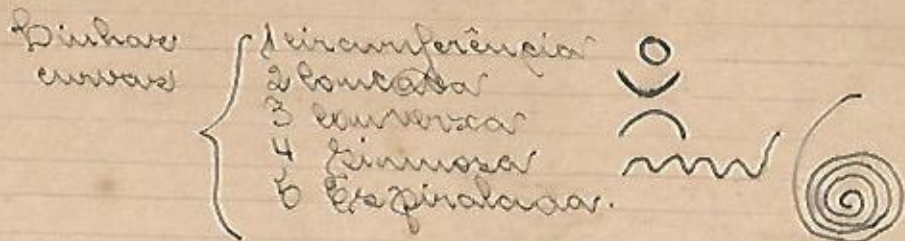 Linhas
curvas
1 circunferência
2 concava
3 convexa
4 Sinuosa
5 Espiralada.